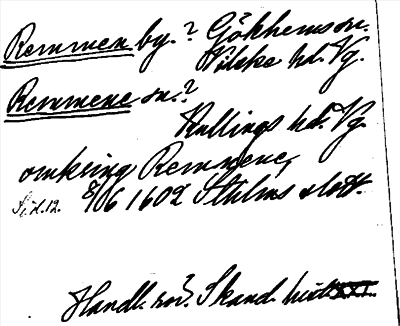 Remmen by.? Gökhems sn.
Vilske hd. Vg.
Remmene sn.?
Kullings hd. Vg.
omkring Remnene,
S. 212. 8/6 1602 Sthlms slott.
Handl. rör. Skand. hist. XXI.